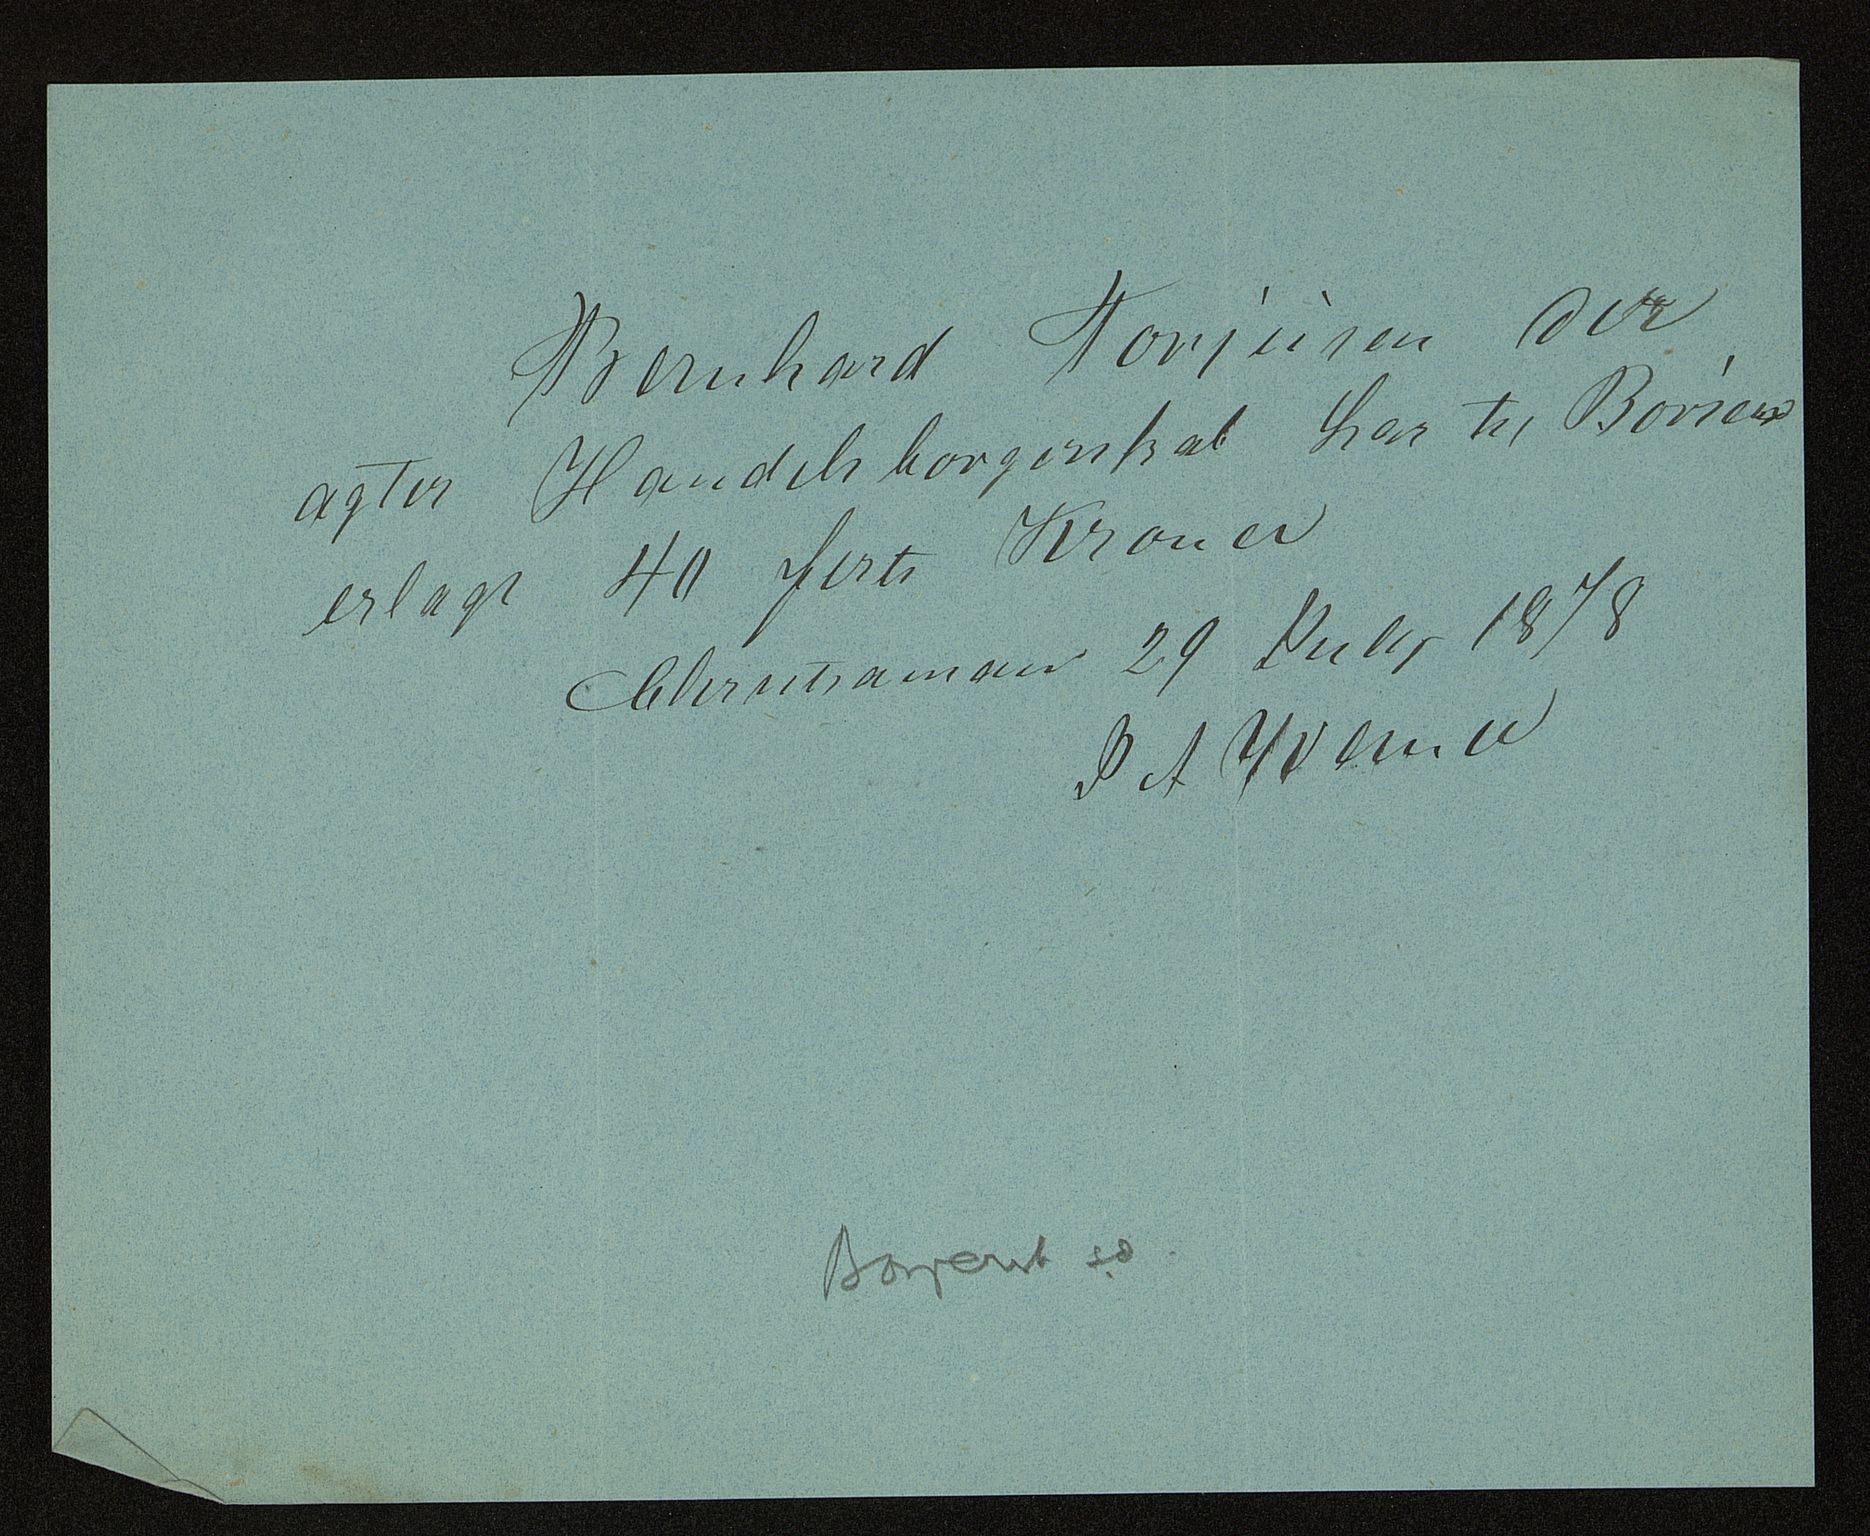 Bernhard Torjusen der
agter Handelsborgerskab har til Børsen
erlagt 40 firti Kroner
Christiansand 29 July 1878
P A
Borgersk